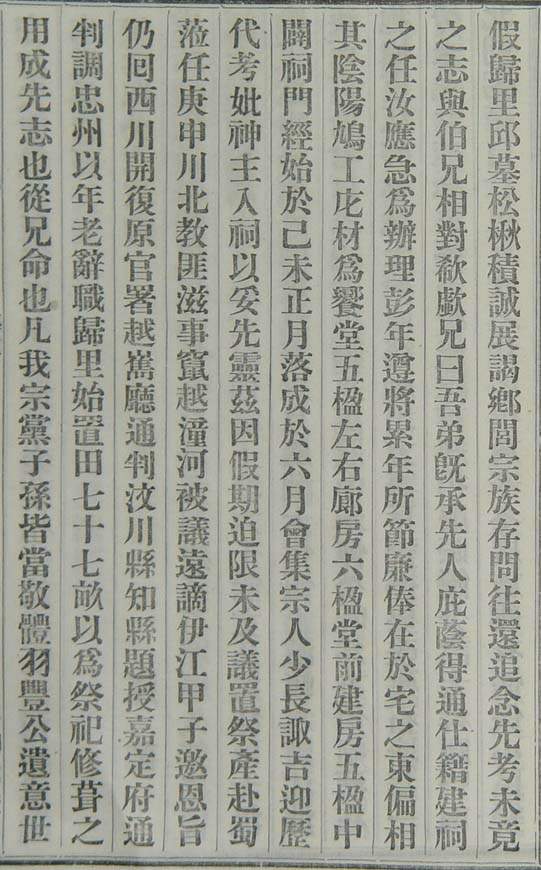 假歸里邱墓松楸積誠展謁鄉閭宗族存問往還追念先考未竟
之志與伯兄相對欷歔兄曰吾弟旣承先人庇蔭得通仕籍建祠
之任汝應急爲辦理彭年遵將累年所節廉俸在於宅之東偏相
其陰陽鳩工庀材爲饗堂五楹左右廊房六楹堂前建房五楹中
闢祠門經始於己未正月落成於六月會集宗人少長諏吉迎歷
代考妣神主入祠以妥先靈茲因假期迫限未及議置祭產赴蜀
蒞任庚申川北教匪滋事竄越潼河被議遠謫伊江甲子邀恩旨
仍回西川開復原官署越嶲廳通判汶川縣知縣題授嘉定府通
判調忠州以年老辭職歸里始置田七十七畝以爲祭祀修葺之
用成先志也從兄命也凡我宗黨子孫皆當敬體羽豐公遺意世